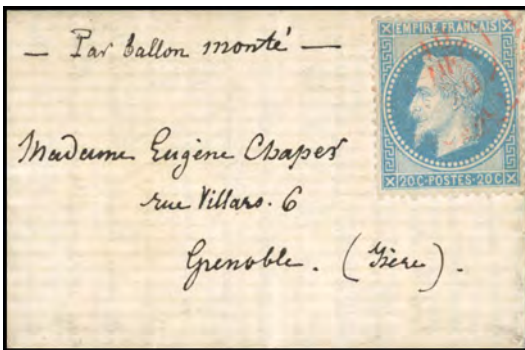 — Par ballon monté —
EMPIRE FRANÇAIS
20 C - POSTES - 20 C
Madame Eugène Chaper
rue Villars. 6
Grenoble. (Isère).